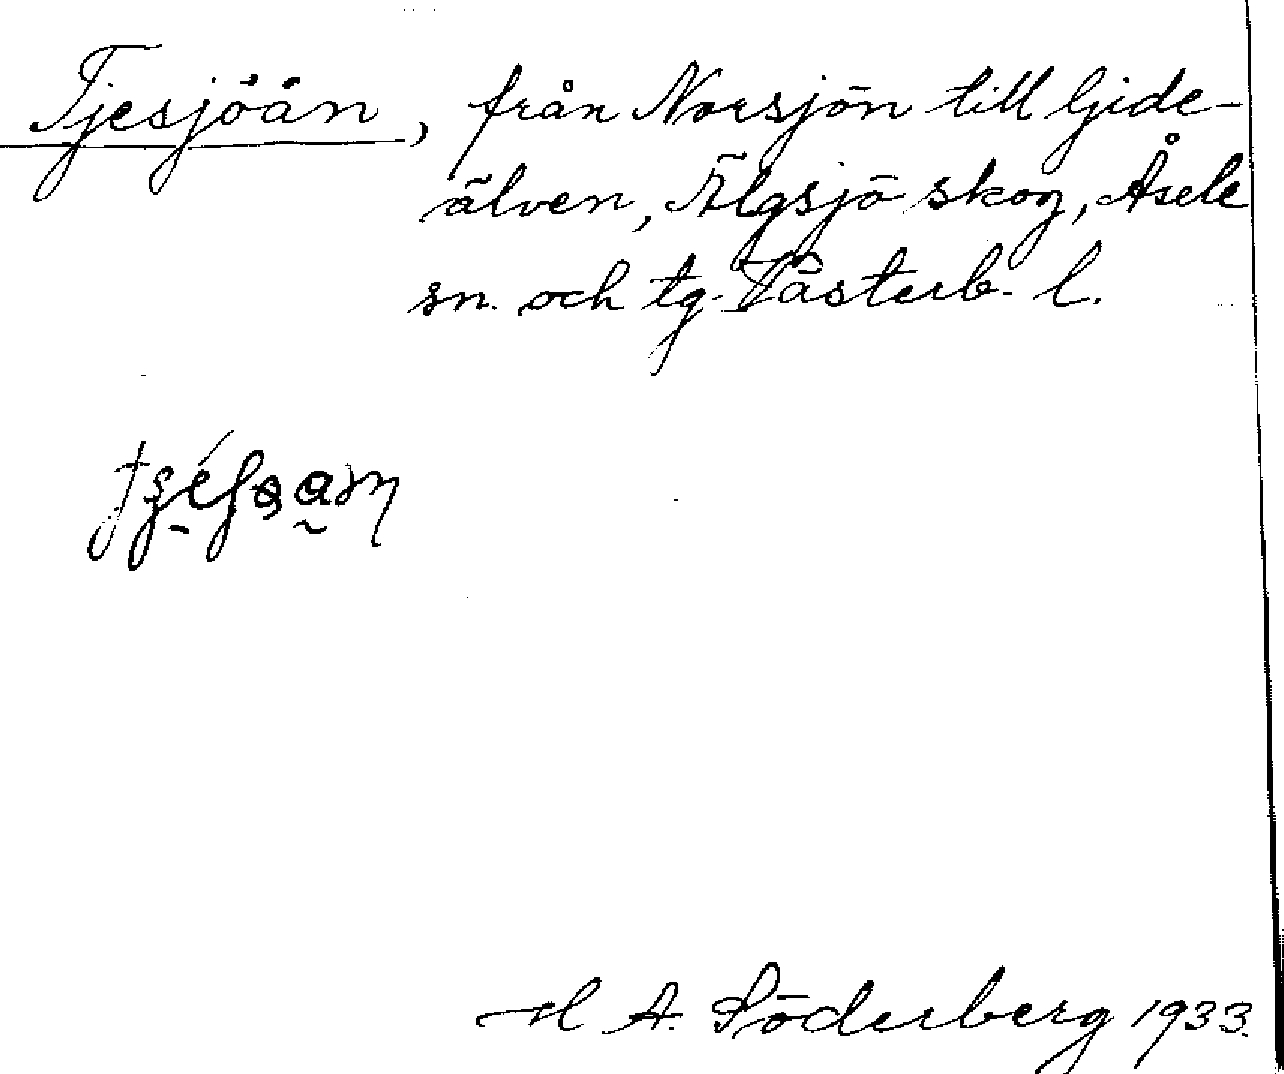 Tjesjöån, från Norsjön till Gide-
älven, Älgsjö skog, Åsele
sn. och tg. Västerb. l.
H A. Söderberg 1933.